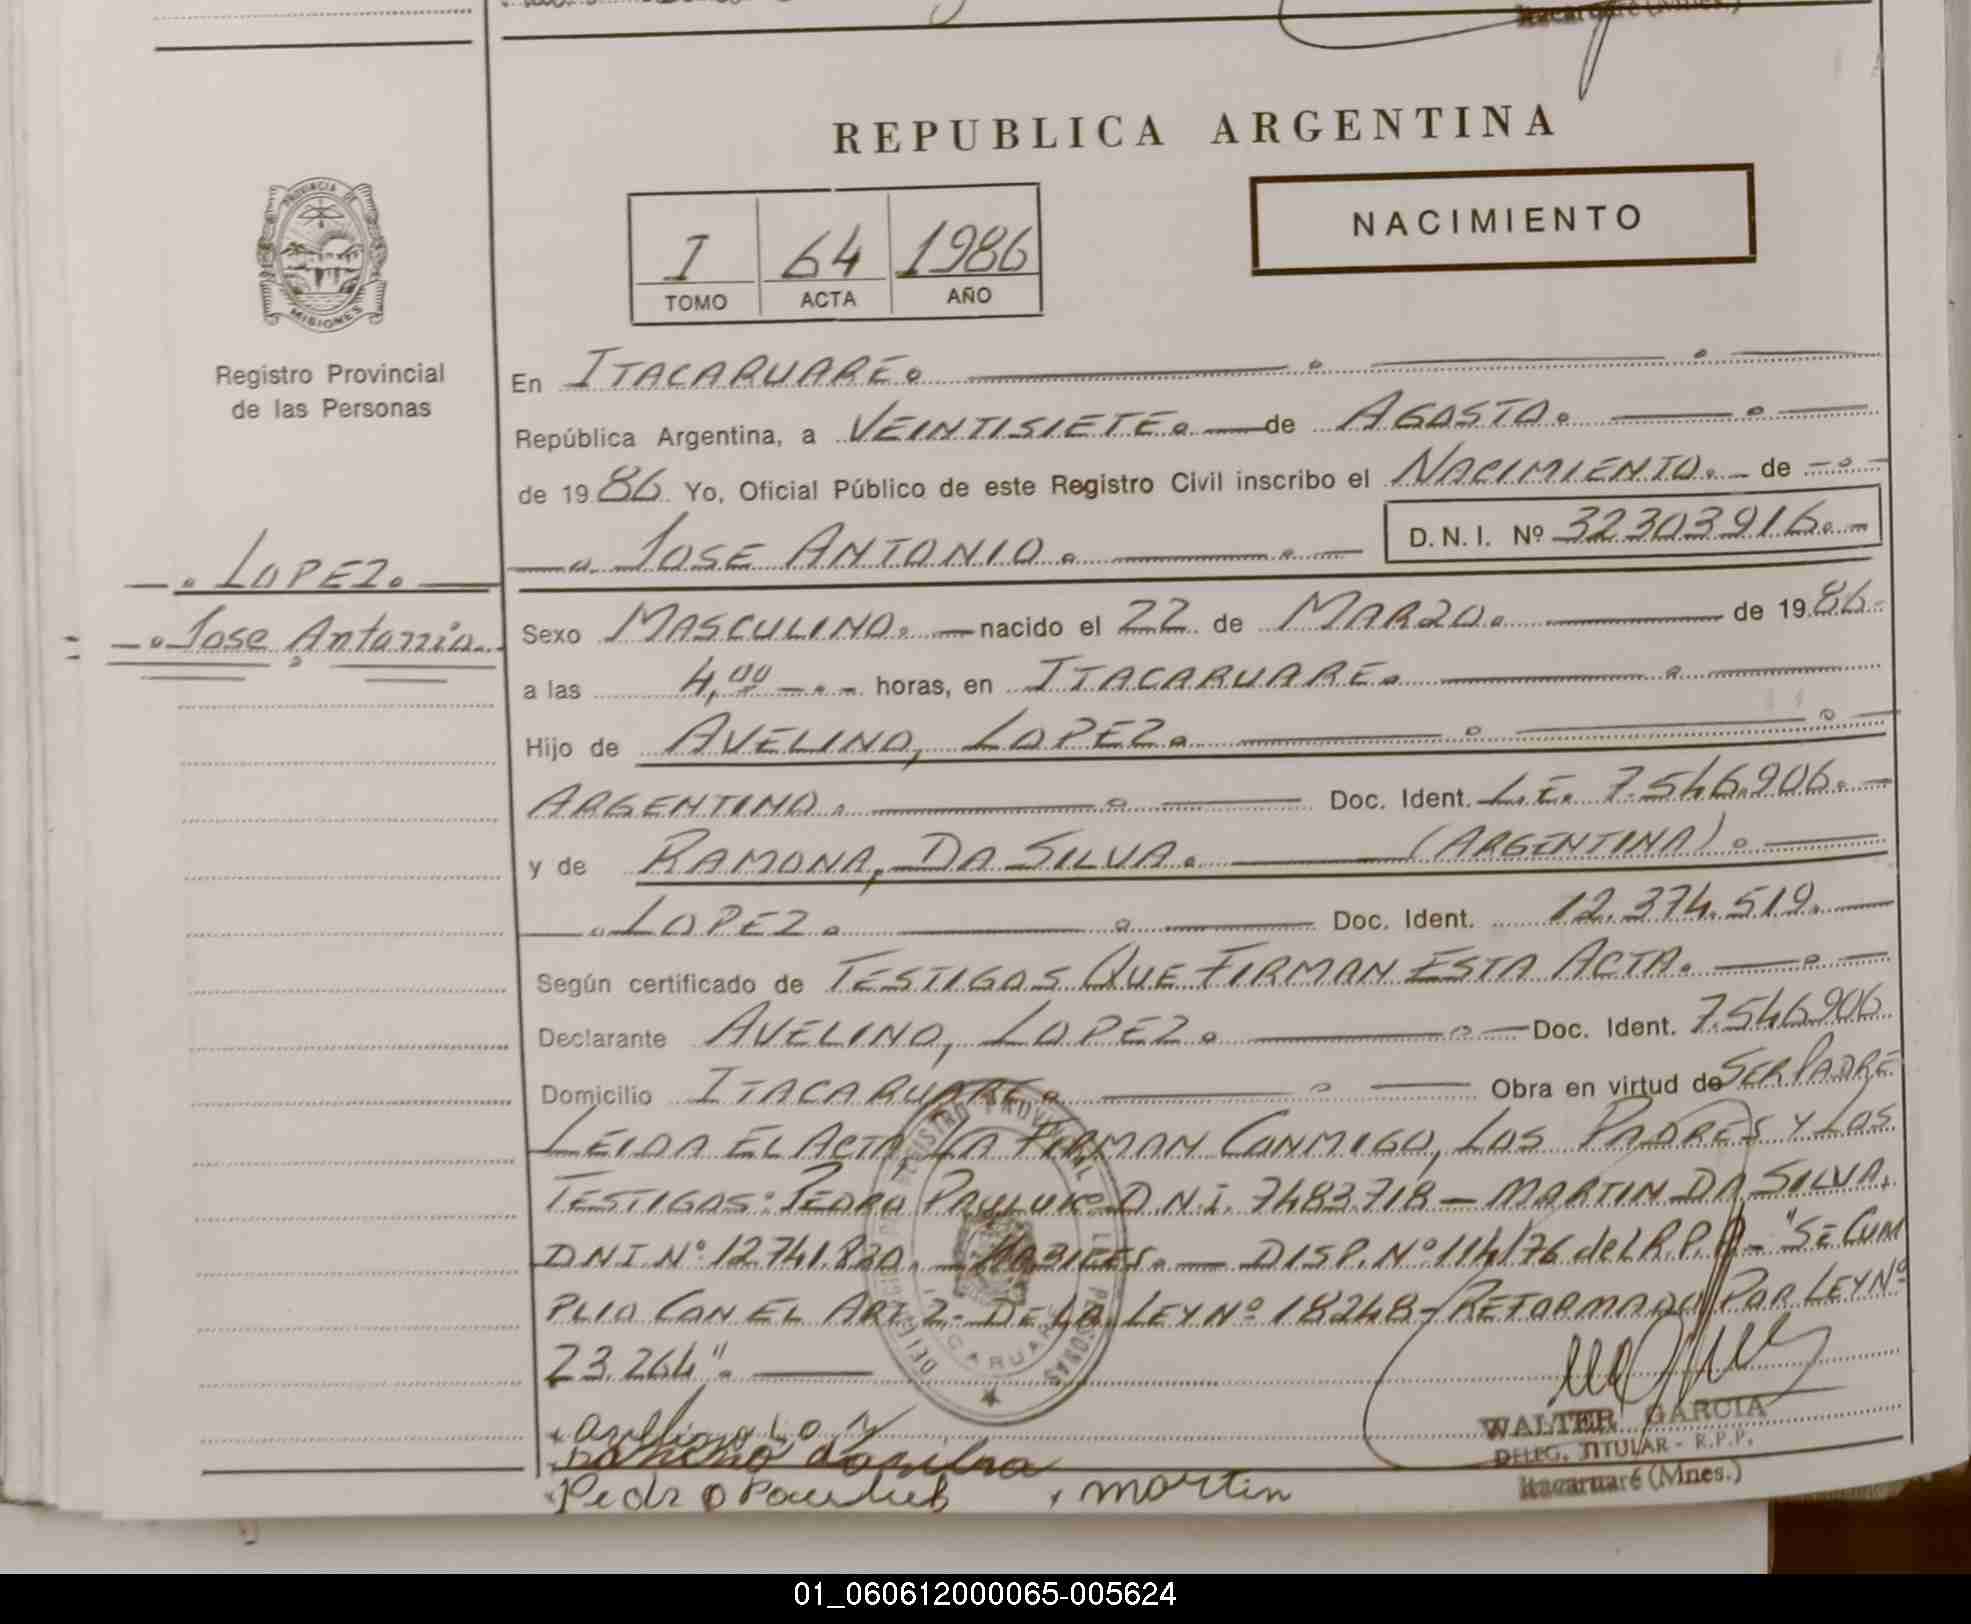 REPUBLICA ARGENTINA
PROVINCIA DE
MISIONES
Registro Provincial
de las Personas
I 64 1986
TOMO ACTA AÑO
NACIMIENTO
En ITACARUARE.
República Argentina, a VEINTISIETE. de AGOSTO.
de 1986 Yo, Oficial Público de este Registro Civil inscribo el NACIMIENTO. de
JOSE ANTONIO. D. N. I. Nº 32303916.
LOPEZ.
Jose Antonio.
Sexo MASCULINO. nacido el 22 de MARZO. de 1986.
a las 4,00 horas, en ITACARUARE.
Hijo de AVELINO, LOPEZ.
ARGENTINO. Doc. Ident. L.E. 7.546.906.
y de RAMONA, DA SILVA. (ARGENTINA).
LOPEZ. Doc. Ident. 12.374.519.
Según certificado de TESTIGOS QUE FIRMAN ESTA ACTA.
Declarante AVELINO, LOPEZ. Doc. Ident. 7.546906
Domicilio ITACARUARE. Obra en virtud de SER PADRE
LEIDA EL ACTA LA FIRMAN CONMIGO, LOS PADRES Y LOS
TESTIGOS: PEDRO D.N.I. 7483.718 - MARTIN DA SILVA,
DNI.Nº 12.741.830. - DISP. Nº 114/76 del R.P.P. - "SE CUM
PLIO CON EL ART 2- DE LA LEY Nº 18248- REFORMADO POR LEY Nº
23.264".
Pedro martin
WALTER GARCIA
DELEG. TITULAR - R.P.P.
Itacaruaré (Mnes.)
01_060612000065-005624